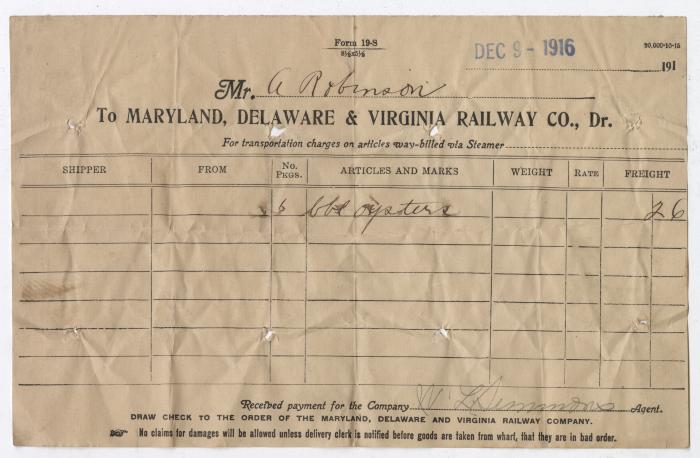 Form 19-S
8½x5½
DEC 9 - 1916
20,000-10-15
191
Mr. A Robinson
To MARYLAND, DELAWARE & VIRGINIA RAILWAY CO., Dr.
For transportation charges on articles way-billed via Steamer
SHIPPER FROM No. PKGS. ARTICLES AND MARKS WEIGHT RATE FREIGHT
6 bbl oysters 26
Received payment for the Company W L Simmons Agent.
DRAW CHECK TO THE ORDER OF THE MARYLAND, DELAWARE AND VIRGINIA RAILWAY COMPANY.
No claims for damages will be allowed unless delivery clerk is notified before goods are taken from wharf, that they are in bad order.